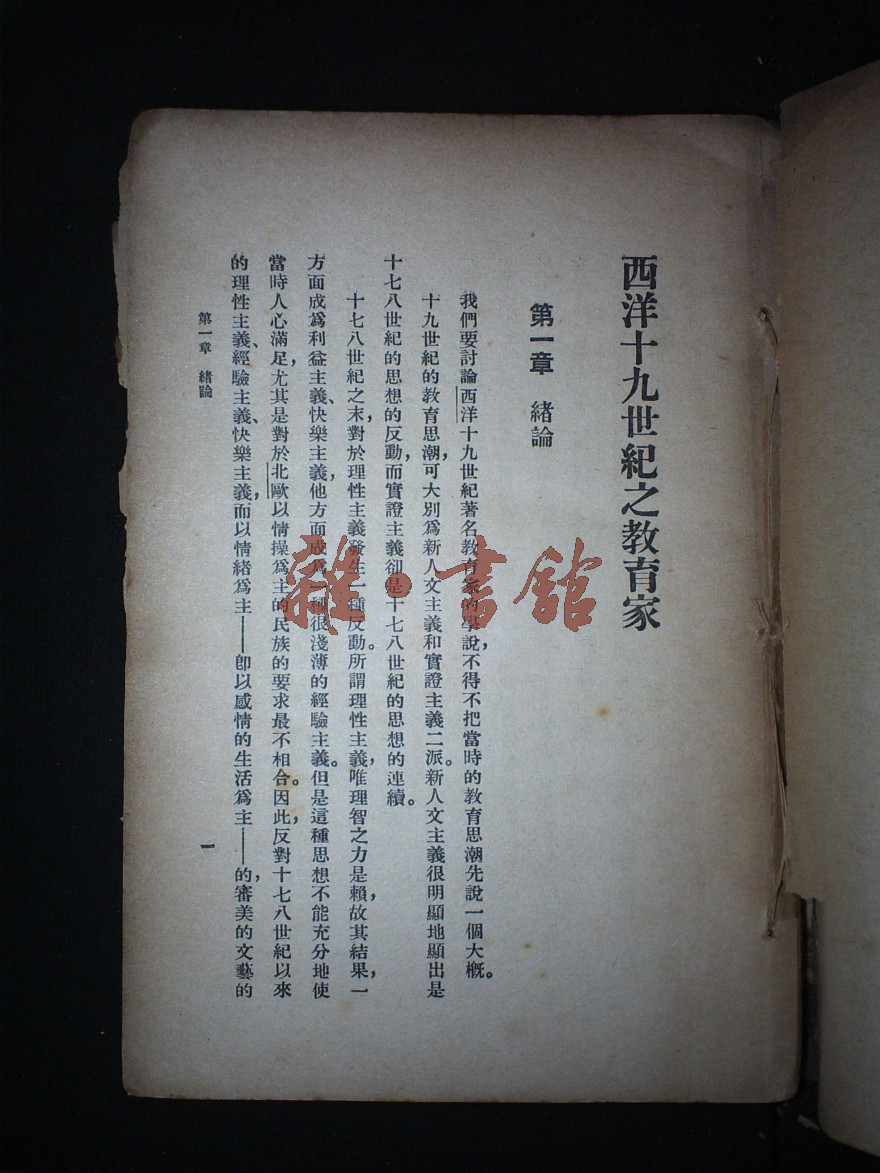 西洋十九世紀之教育家
第一章　緒論
我們要討論西洋十九世紀著名教育家的學說，不得不把當時的教育思潮先說一個大概。
十九世紀的教育思潮，可大別爲新人文主義和實證主義二派。新人文主義很明顯地顯出是
十七八世紀的思想的反動，而實證主義卻是十七八世紀的思想的連續。
十七八世紀之末，對於理性主義發生一種反動。所謂理性主義，唯理智之力是賴，故其結果，一
方面成爲利益主義、快樂主義，他方面成爲一種很淺薄的經驗主義。但是這種思想不能充分地使
當時人心滿足，尤其是對於北歐以情操爲主的民族的要求最不相合。因此，反對十七八世紀以來
的理性主義、經驗主義、快樂主義，而以情緒爲主——卽以感情的生活爲主——的，審美的文藝的
第一章　緒論
一
雜·書館